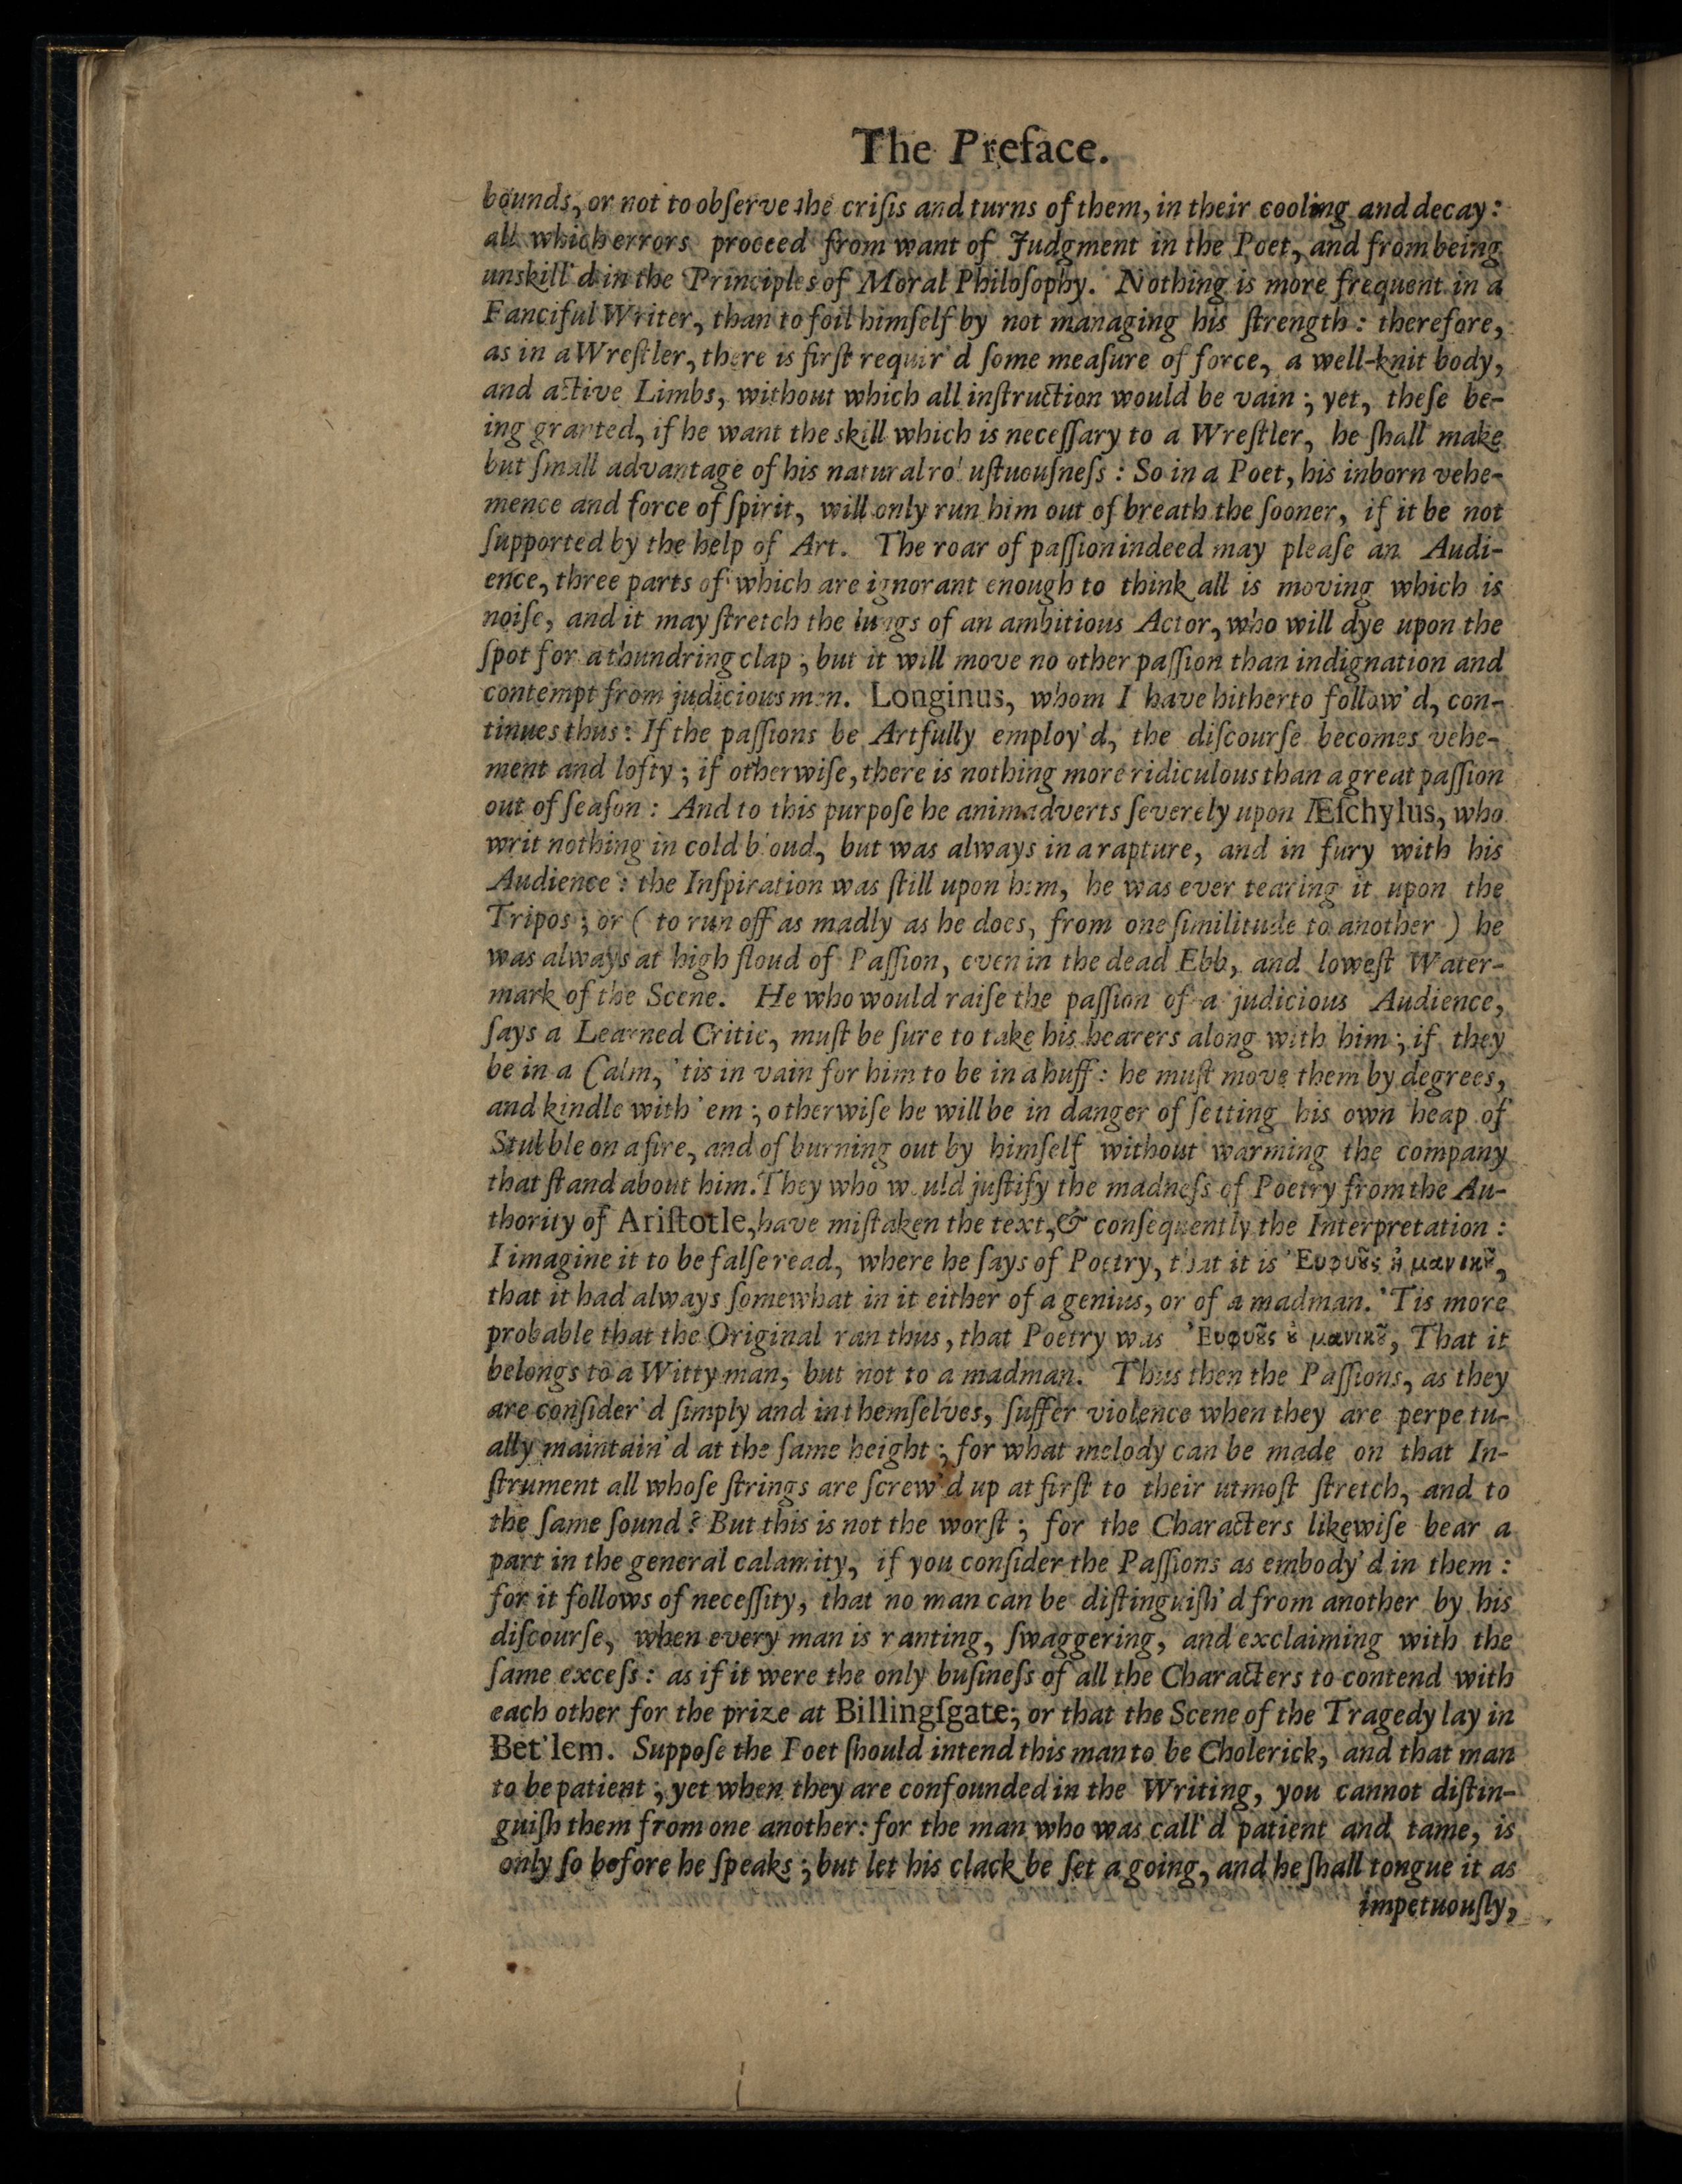 The Preface.
bounds, or not to obſerve the criſis and turns of them, in their cooling and decay:
all which errors proceed from want of Judgment in the Poet, and from being
unskill'd in the Principles of Moral Philoſophy. Nothing is more frequent in a
Fanciful Writer, than to foil himſelf by not managing his ſtrength: therefore,
as in a Wreſtler, there is firſt requir'd ſome meaſure of force, a well-knit body,
and active Limbs, without which all inſtruction would be vain; yet, theſe be-
ing granted, if he want the skill which is neceſſary to a Wreſtler, he ſhall make
but ſmall advantage of his natural robuſtuouſneſs: So in a Poet, his inborn vehe-
mence and force of ſpirit, will only run him out of breath the ſooner, if it be not
ſupported by the help of Art. The roar of paſſion indeed may pleaſe an Audi-
ence, three parts of which are ignorant enough to think all is moving which is
noiſe, and it may ſtretch the lungs of an ambitious Actor, who will dye upon the
ſpot for a thundring clap; but it will move no other paſſion than indignation and
contempt from judicious men. Longinus, whom I have hitherto follow'd, con-
tinues thus: If the paſſions be Artfully employ'd, the diſcourſe becomes vehe-
ment and lofty; if otherwiſe, there is nothing more ridiculous than a great paſſion
out of ſeaſon: And to this purpoſe he animadverts ſeverely upon Æſchylus, who
writ nothing in cold bloud, but was always in a rapture, and in fury with his
Audience: the Inſpiration was ſtill upon him, he was ever tearing it upon the
Tripos; or (to run off as madly as he does, from one ſimilitude to another) he
was always at high floud of Paſſion, even in the dead Ebb, and loweſt Water-
mark of the Scene. He who would raiſe the paſſion of a judicious Audience,
ſays a Learned Critic, muſt be ſure to take his hearers along with him; if they
be in a Calm, 'tis in vain for him to be in a huff: he muſt move them by degrees,
and kindle with 'em; otherwiſe he will be in danger of ſetting his own heap of
Stubble on a fire, and of burning out by himſelf without warming the company
that ſtand about him. They who would juſtify the madneſs of Poetry from the Au-
thority of Ariſtotle, have miſtaken the text, & conſequently the Interpretation:
I imagine it to be falſe read, where he ſays of Poetry, that it is Ἐυφυȣ͂ς ἢ μανικȣ͂,
that it had always ſomewhat in it either of a genius, or of a madman. 'Tis more
probable that the Original ran thus, that Poetry was Ἐυφυȣ͂ς ȣ̓ μανικȣ͂, That it
belongs to a Witty man, but not to a madman. Thus then the Paſſions, as they
are conſider'd ſimply and in themſelves, ſuffer violence when they are perpetu-
ally maintain'd at the ſame height; for what melody can be made on that In-
ſtrument all whoſe ſtrings are ſcrew'd up at firſt to their utmoſt ſtretch, and to
the ſame ſound? But this is not the worſt; for the Characters likewiſe bear a
part in the general calamity, if you conſider the Paſſions as embody'd in them:
for it follows of neceſſity, that no man can be diſtinguiſh'd from another by his
diſcourſe, when every man is ranting, ſwaggering, and exclaiming with the
ſame exceſs: as if it were the only buſineſs of all the Characters to contend with
each other for the prize at Billingſgate; or that the Scene of the Tragedy lay in
Bet'lem. Suppoſe the Poet ſhould intend this man to be Cholerick, and that man
to be patient; yet when they are confounded in the Writing, you cannot diſtin-
guiſh them from one another: for the man who was call'd patient and tame, is
only ſo before he ſpeaks; but let his clack be ſet a going, and he ſhall tongue it as
impetuouſly,